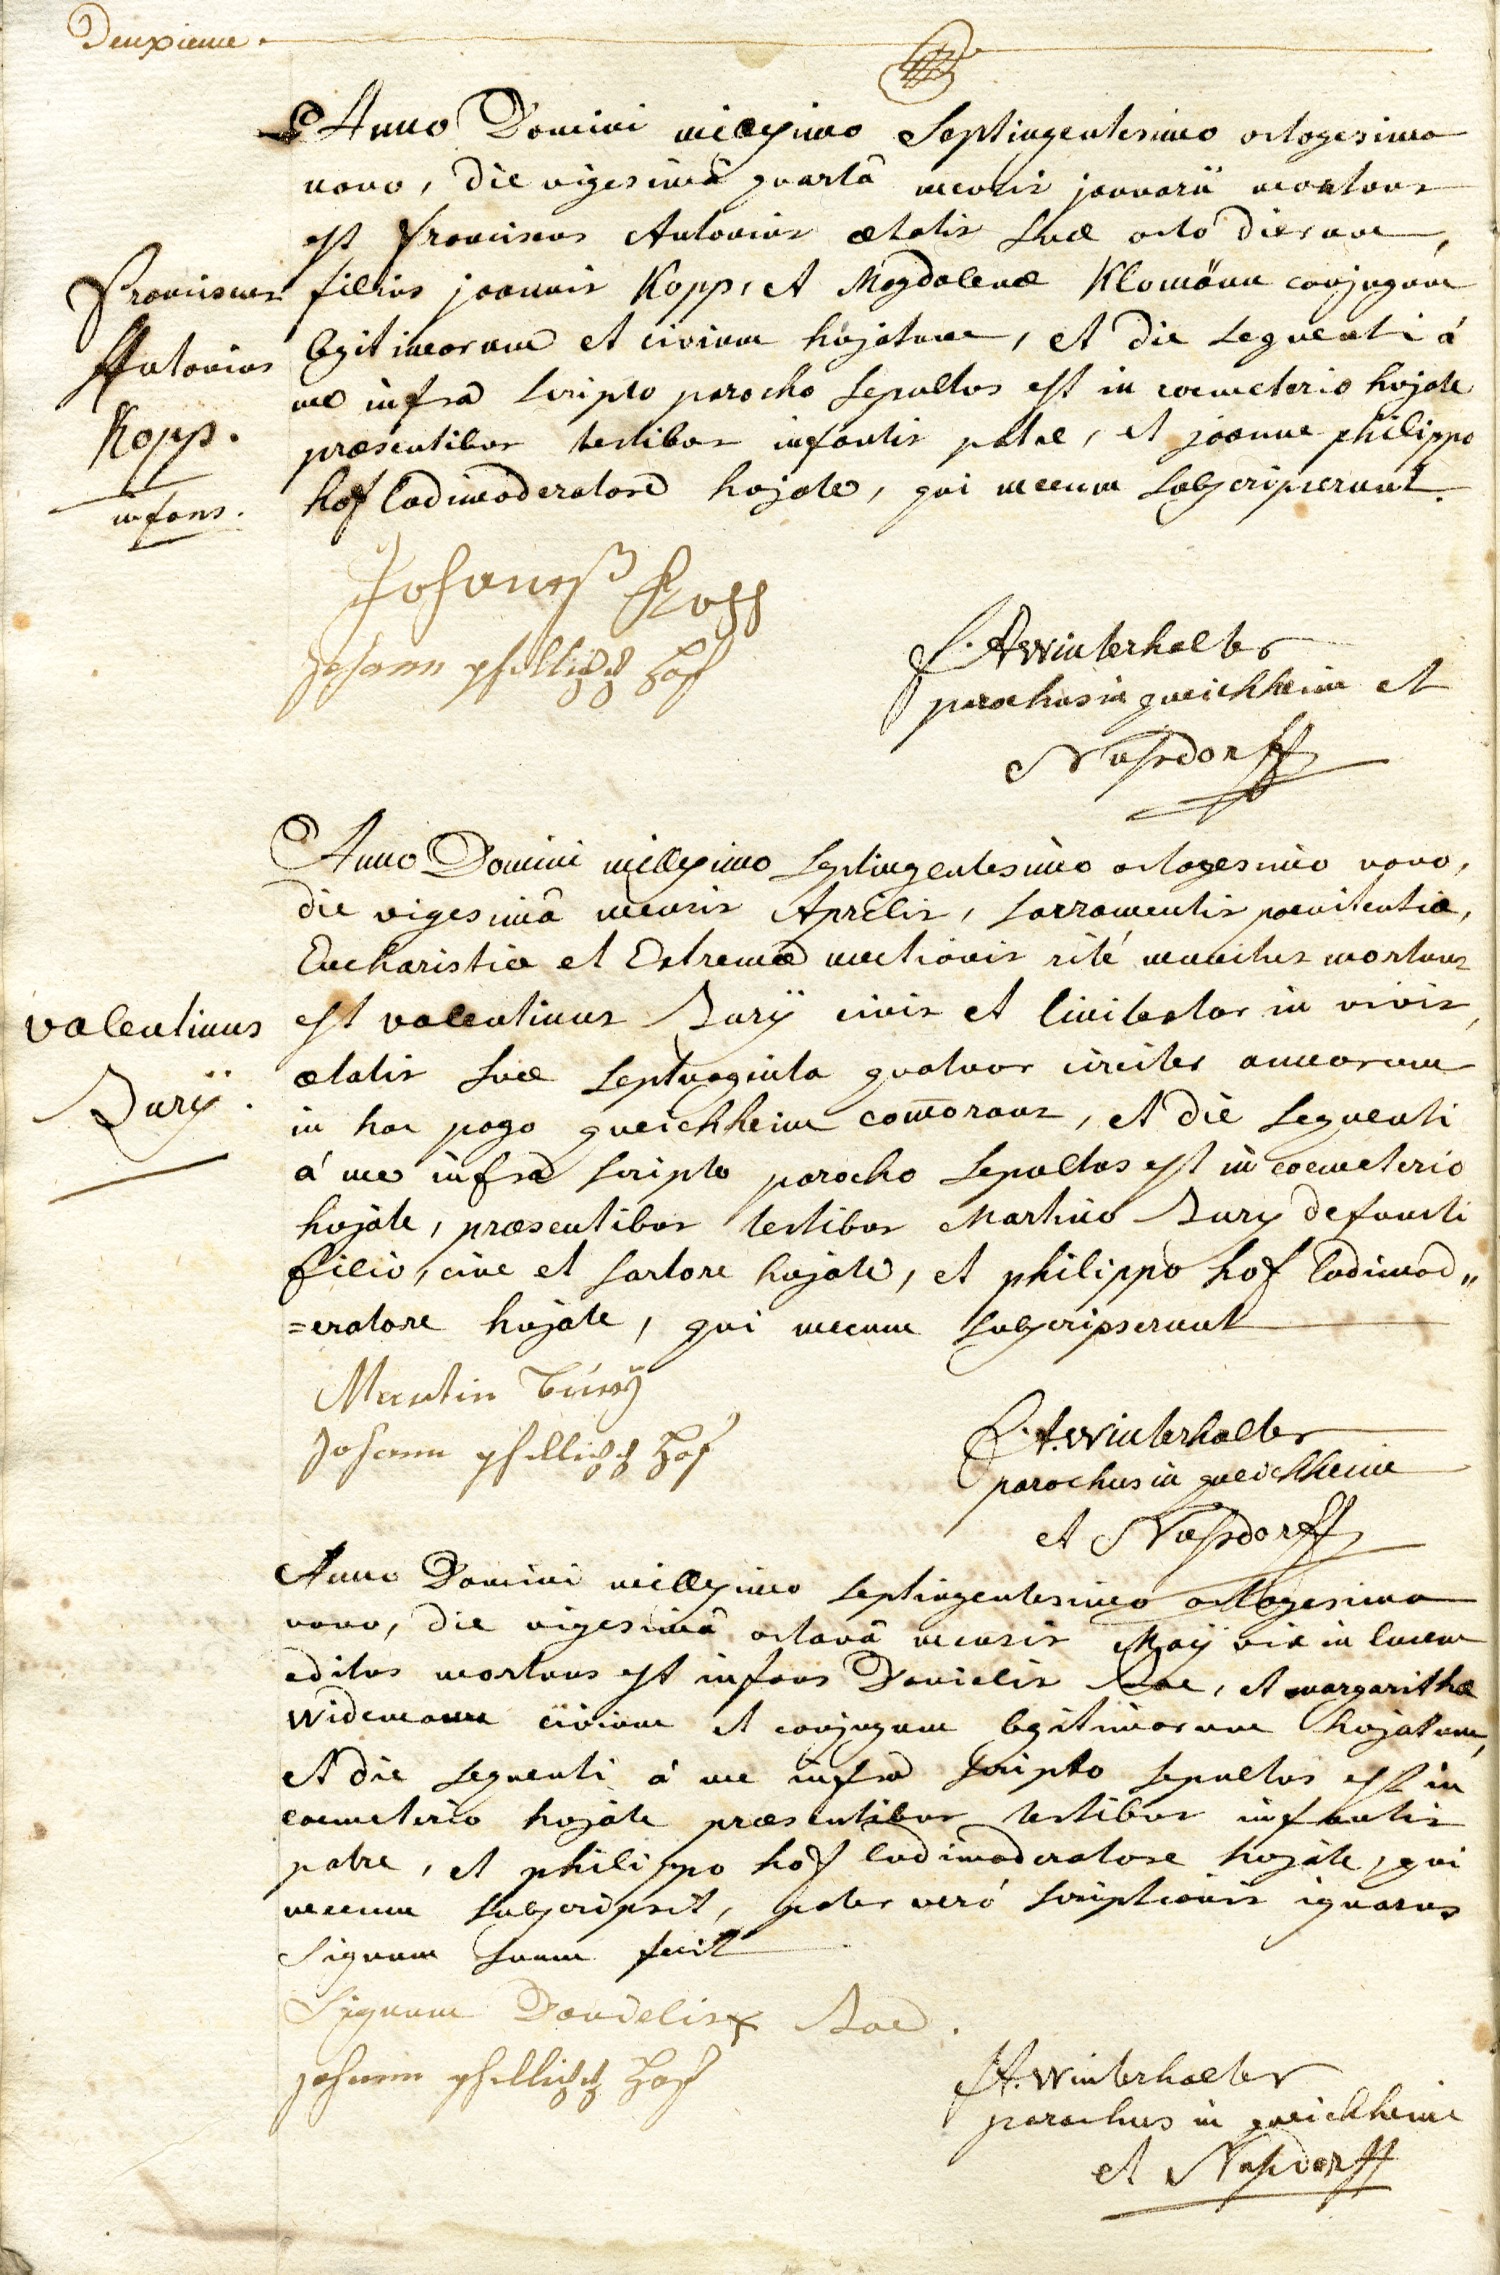 Deuxieme.
Anno Domini millesimo Septingentesimo octogesimo
nono, die vigesimâ quartâ mensis januarii mortuus
est franciscus Antonius ætatis suæ octo dierum,
franciscus
Antonius
Kopp.
infans.
filius joannis Kopp, et Magdalenæ Klomänn conjugum
legitimorum et civium hujatum, et die sequenti á
me infra scripto parocho sepultus est in coemeterio hujate
præsentibus testibus infantis patre, et joanne philippo
hof ludimoderatore hujate, qui mecum subscripserunt.
Johannes Kopp
Johann phillipp Hof
F. A. Winterhalter
parochus in queichheim et
Nussdorff
Anno Domini millesimo septingentesimo octogesimo nono,
die vigesimâ mensis Aprilis, sacramentis poenitentiæ,
Eucharistiæ et Extremæ unctionis rité munitus mortuus
valentinus
Burÿ.
est valentinus Burÿ civis et linitextor in vivis,
ætatis suæ septuaginta quatuor circiter annorum
in hoc pago queichheim com̄orans, et die sequenti
á me infra scripto parocho sepultus est in coemeterio
hujate, præsentibus testibus Martino Bury defuncti
filio, cive et sartore hujate, et philippo hof ludimod„
=eratore hujate, qui mecum subscripserunt
Martin Burÿ
Johann phillipp Hof
F. A. Winterhalter
parochus in queichheim
et Nussdorff
Anno Domini millesimo septingentesimo octogesimo
nono, die vigesimâ octavâ mensis Maÿ vix in lucem
editus mortuus est infans Danielis, et margarithæ
Widemann civium et conjugum legitimorum hujatum,
et die sequenti á me infra scripto sepultus est in
coemeterio hujate præsentibus testibus infantis
patre, et philippo hof ludimoderatore hujate, qui
mecum subscripsit, pater veró scriptionis ignarus
signum suum fecit
Signum Danielis x
Johann phillipp Hof
F. A. Winterhalter
parochus in queichheim
et Nussdorff